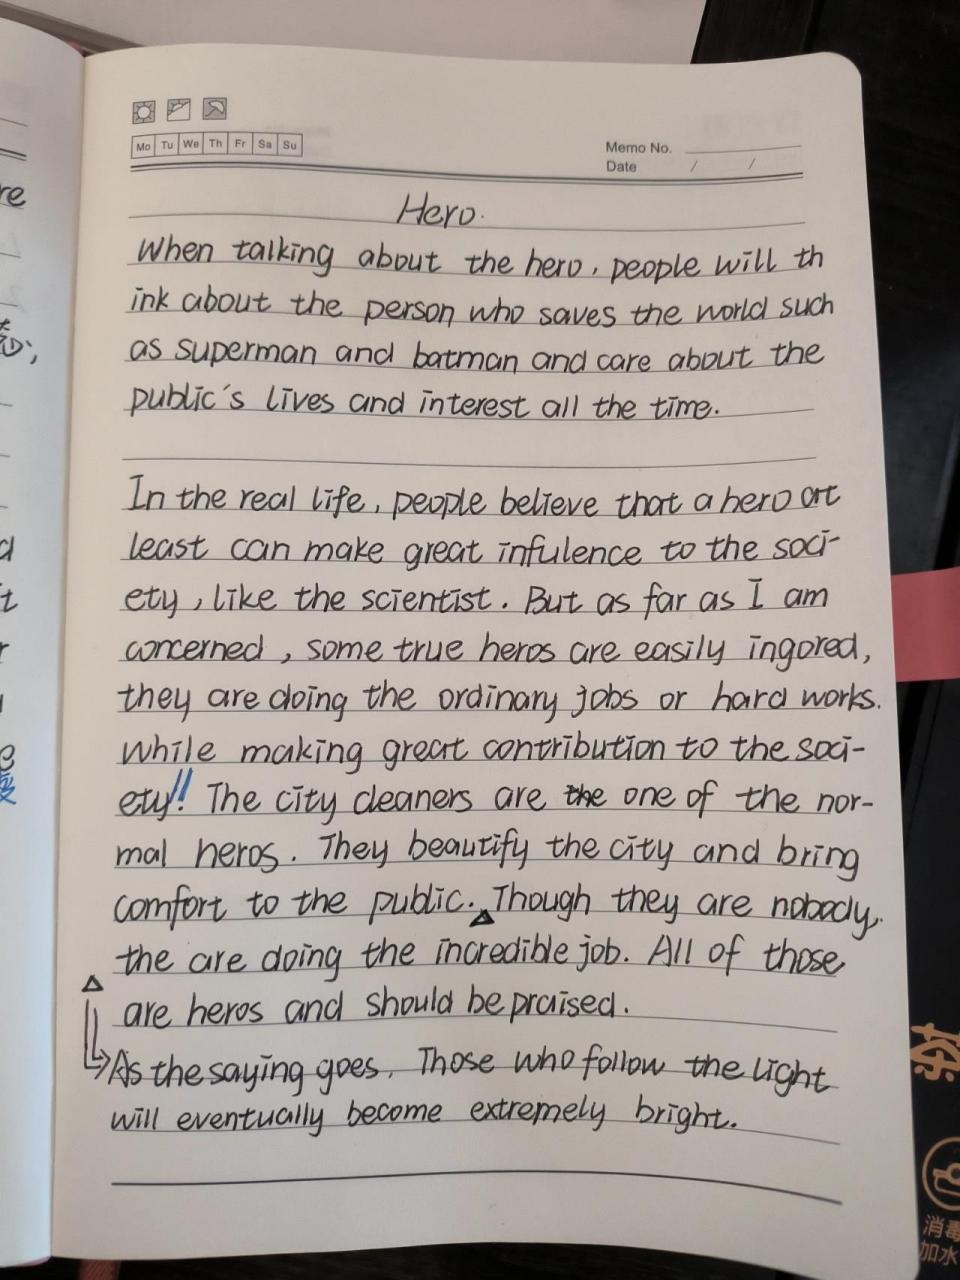 Mo Tu We Th Fr Sa Su
Memo No.
Date / /
Hero.
When talking about the hero, people will th
ink about the person who saves the world such
as superman and batman and care about the
public's lives and interest all the time.
In the real life, people believe that a hero at
least can make great infulence to the soci-
ety, like the scientist. But as far as I am
concerned, some true heros are easily ingored,
they are doing the ordinary jobs or hard works.
While making great contribution to the soci-
ety!! The city cleaners are the one of the nor-
mal heros. They beautify the city and bring
comfort to the public. Though they are nobody,
the are doing the incredible job. All of those
are heros and should be praised.
As the saying goes, Those who follow the light
will eventually become extremely bright.
re
茶
消毒
加水